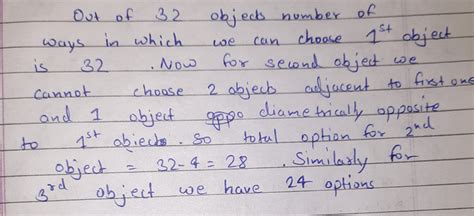 Out of 32 objects number of
ways in which we can choose 1st object
is 32 . Now for second object we
cannot choose 2 objects adjacent to first one
and 1 object diametrically opposite
to 1st objects. So total option for 2nd
object = 32-4 = 28 . Similarly for
3rd object we have 24 options